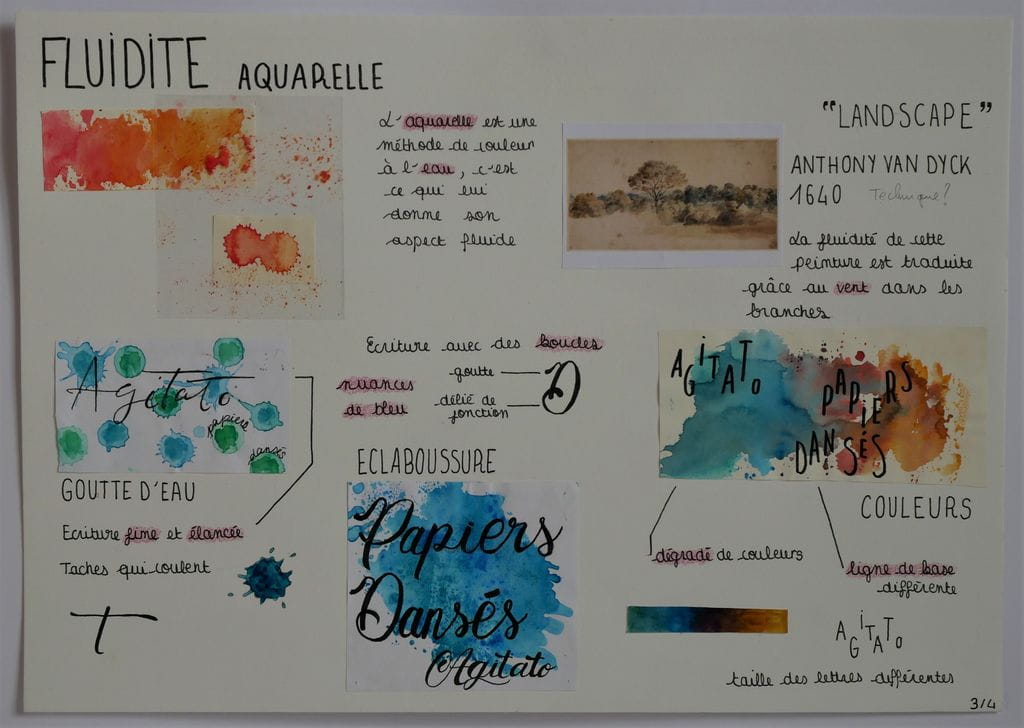 FLUIDITE AQUARELLE
L'aquarelle est une
méthode de couleur
à l'eau, c'est
ce qui lui
donne son
aspect fluide
"LANDSCAPE"
ANTHONY VAN DYCK
1640 Technique?
La fluidité de cette
peinture est traduite
grâce au vent dans les
branches
Agitato
papiers
dansés
GOUTTE D'EAU
Ecriture fine et élancée
Taches qui coulent
T
Ecriture avec des boucles
nuances
de bleu
goutte
délié de
jonction
D
ECLABOUSSURE
Papiers
Dansés
Agitato
AGITATO
PAPIERS
DANSÉS
COULEURS
dégradé de couleurs
ligne de base
différente
AGITATO
taille des lettres différentes
3/4